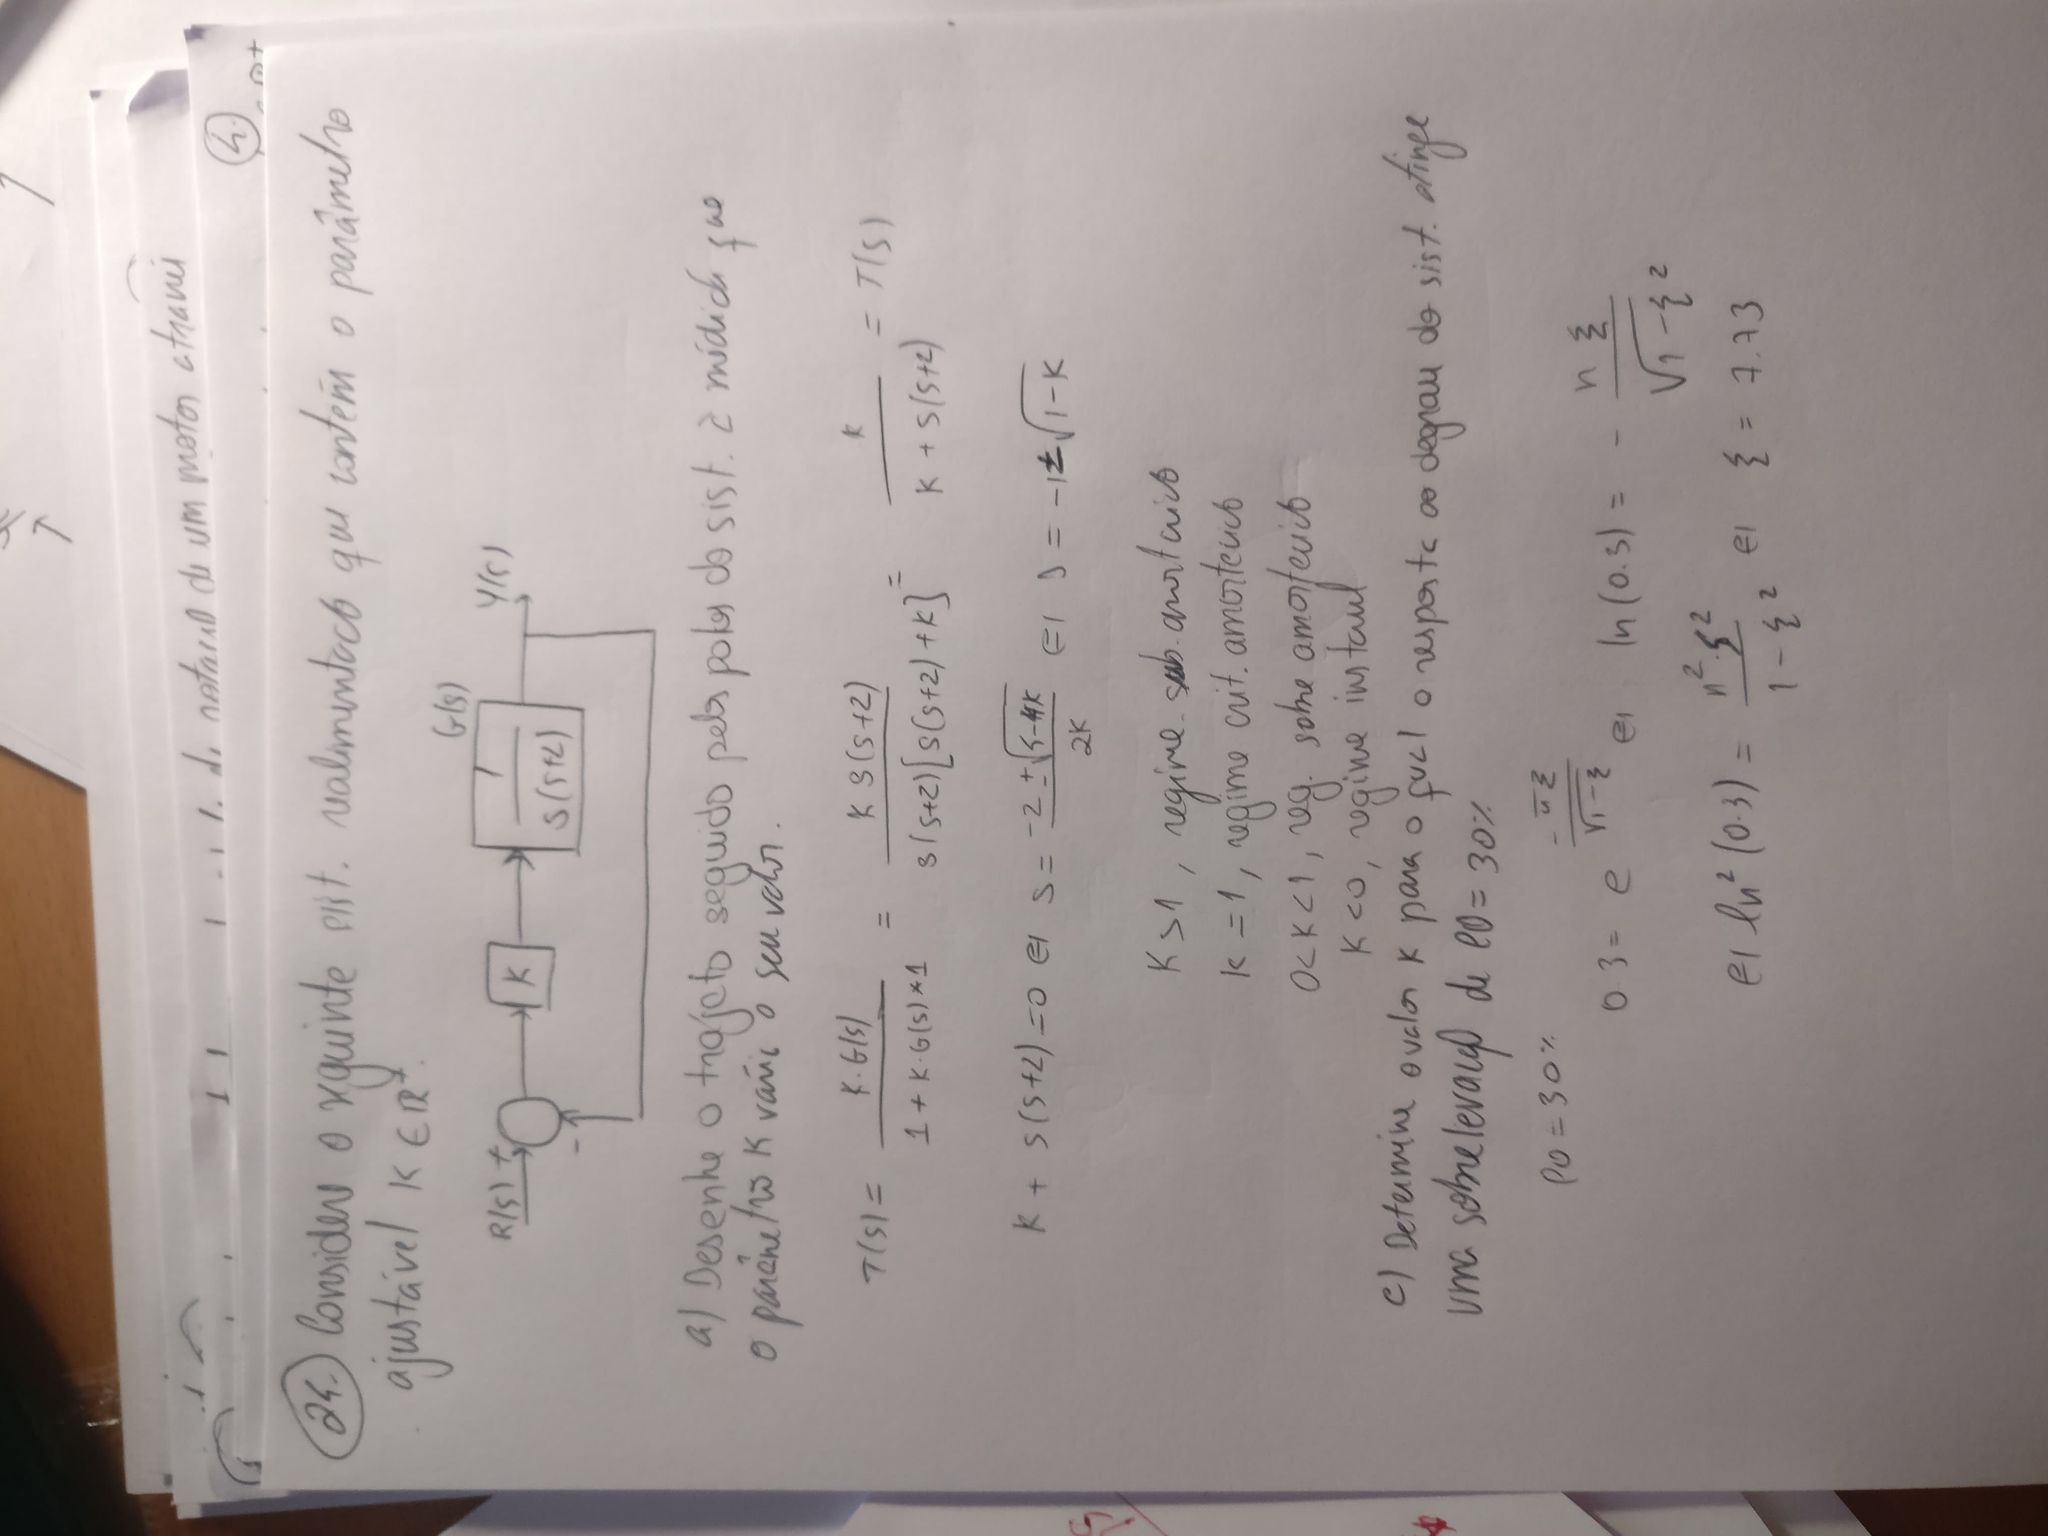 de um motor através
4.
24. Considere o seguinte sist. realimentado que contém o parâmetro
ajustável K ∈ ℝ⁺.
G(s)
R(s) + K 1/(s(s+2)) Y(s)
-
a) Desenhe o trajeto seguido pelos polos do sist. à medida que
o parâmetro K varie o seu valor.
T(s) = K.G(s)/(1 + K.G(s)*1) = K s(s+2)/(s(s+2)[s(s+2)+K]) = K/(K + s(s+2)) = T(s)
K + s(s+2) = 0 (=) s = (-2 ± √(4-4K))/(2K) (=) s = -1 ± √(1-K)
K > 1, regime sub. amortecido
K = 1, regime crit. amortecido
0 < K < 1, reg. sobre amortecido
K < 0, regime instavel
c) Determine o valor K para o qual a resposta ao degrau do sist. atinge
uma sobrelevação de PO = 30%
PO = 30%
0.3 = e^(-πξ/√(1-ξ)) (=) ln(0.3) = - πξ/√(1-ξ²)
(=) ln²(0.3) = π².ξ²/(1-ξ²) (=) ξ = 7.73